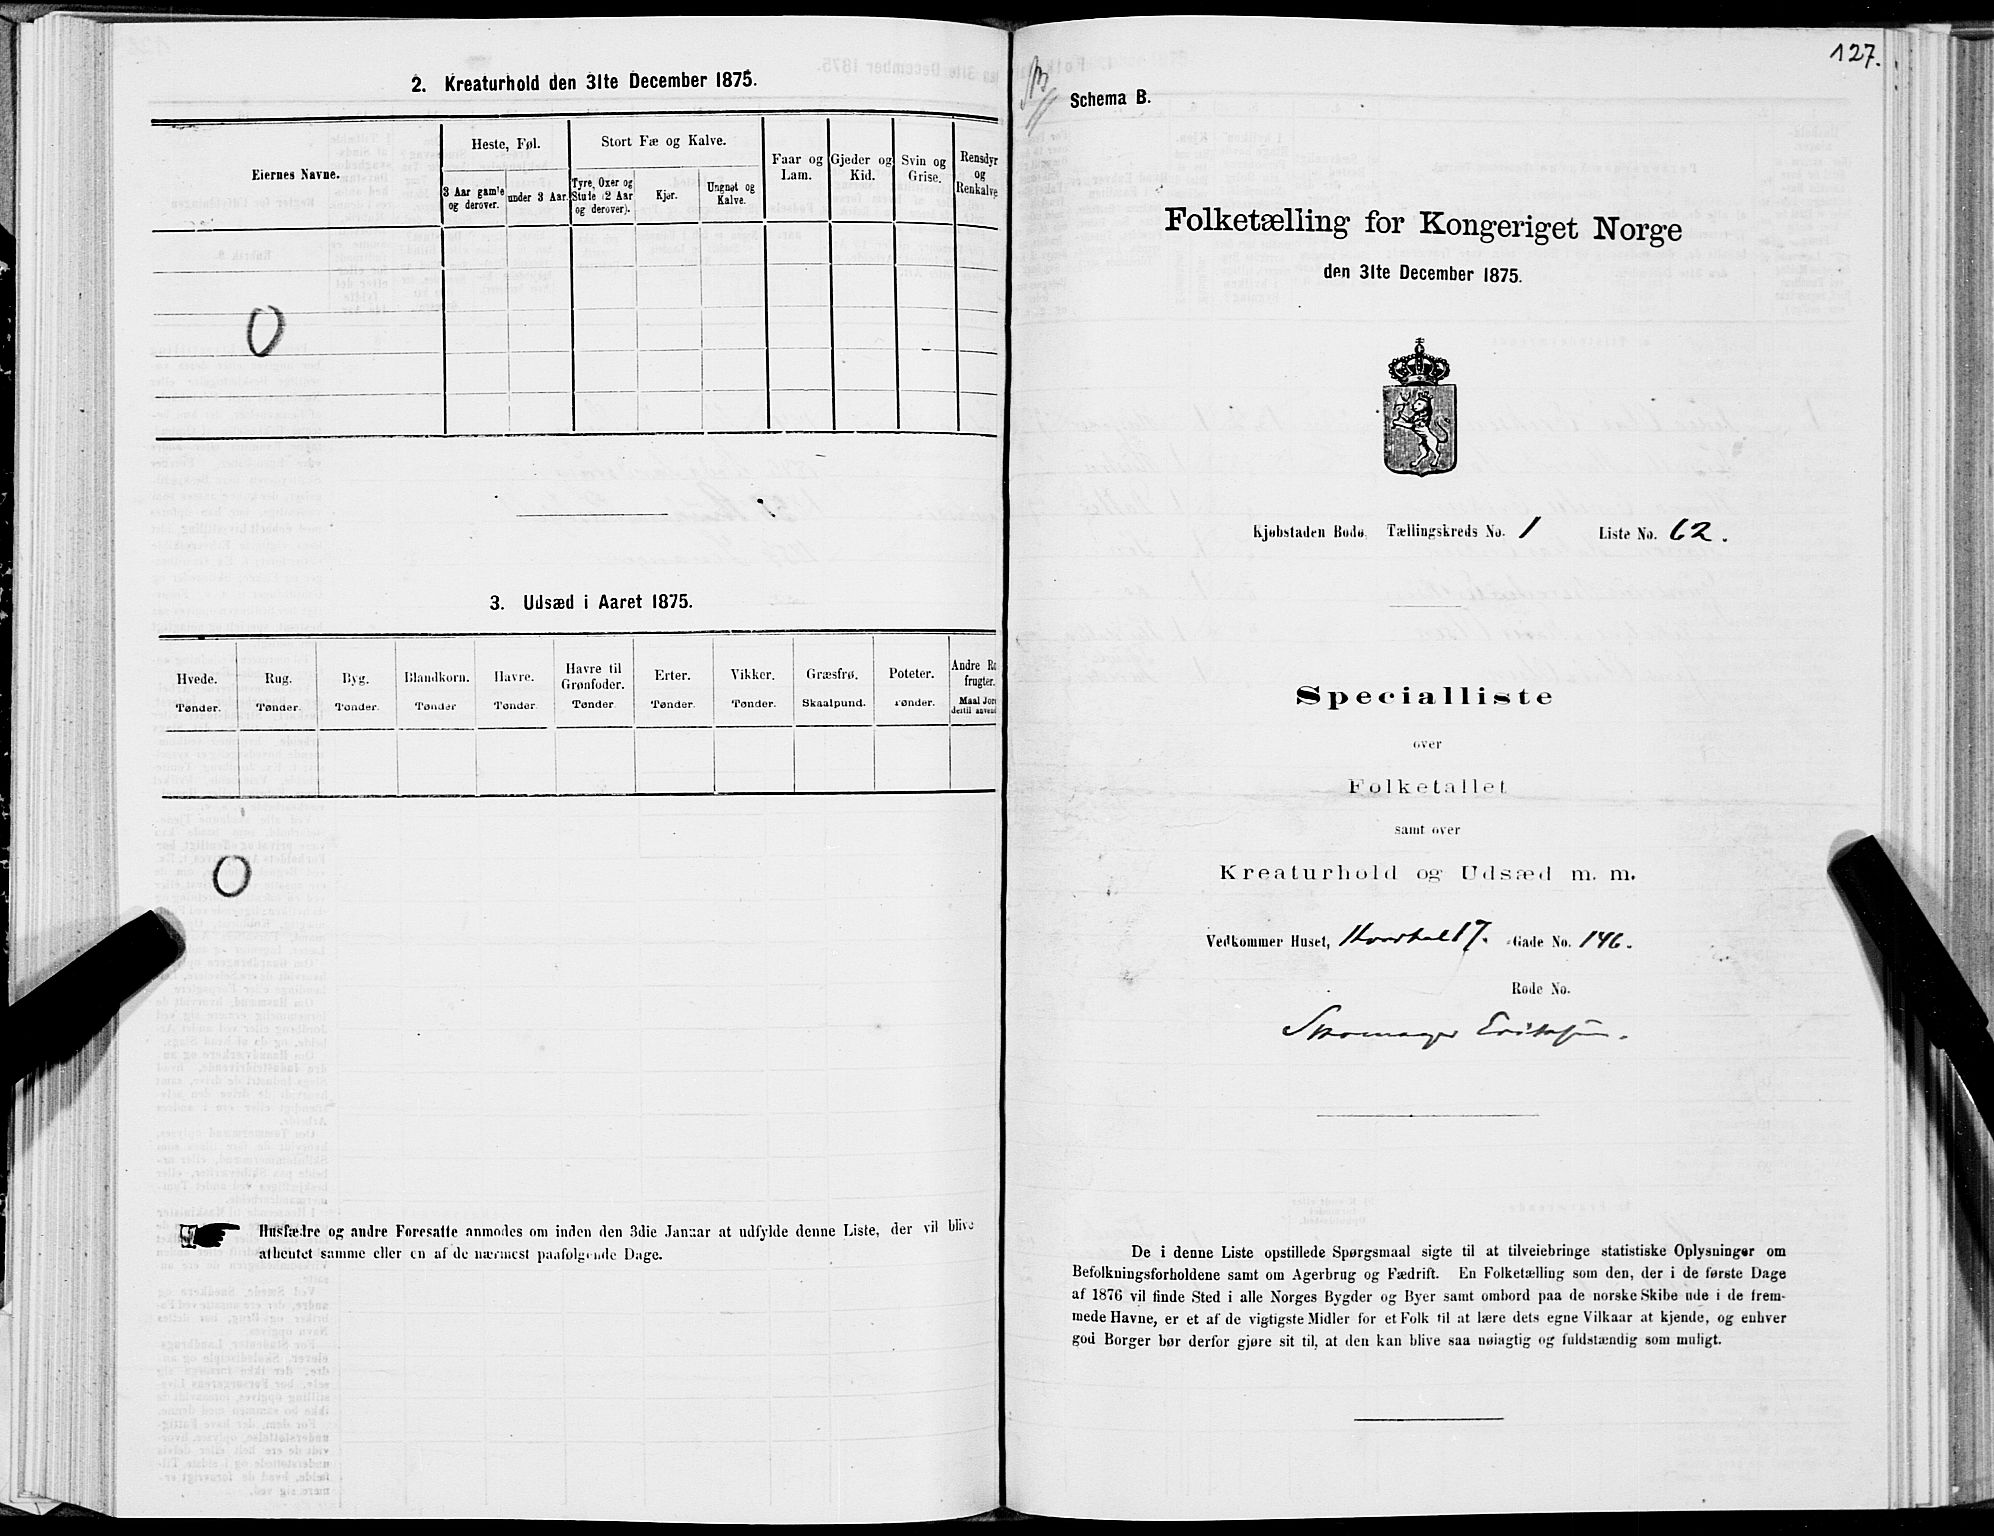 2. Kreaturhold den 31te December 1875.
Eiernes Navne.
Heste, Føl.
Stort Fæ og Kalve.
Faar og Lam.
Gjeder og Kid.
Svin og Grise.
Rensdyr og Renkalve
3 Aar gamle og derover.
under 3 Aar.
Tyre, Oxer og Stude (2 Aar og derover).
Kjør.
Ungnøt og Kalve.
0
3. Udsæd i Aaret 1875.
Hvede. Rug. Byg. Blandkorn. Havre. Havre til Grønfoder. Erter. Vikker. Græsfrø. Poteter. Andre Ro frugter.
Tønder. Tønder. Tønder. Tønder Tønder. Tønder Tønder. Tønder. Skaalpund. Tønder. Maal Jord dertil anvend
0
Husfædre og andre Foresatte anmodes om inden den 3die Januar at udfylde denne Liste, der vil blive
afhentet samme eller en af de nærmest paafølgende Dage.
127.
Schema B.
Folketælling for Kongeriget Norge
den 31te December 1875.
Kjøbstaden Bodø. Tællingskreds No. 1 Liste No. 62.
Specialliste
over
Folketallet
samt over
Kreaturhold og Udsæd m. m.
Vedkommer Huset, Kvartal 17. Gade No. 146.
Rode No.
Skomager Eriksen.
De i denne Liste opstillede Spørgsmaal sigte til at tilveiebringe statistiske Oplysninger om
Befolkningsforholdene samt om Agerbrug og Fædrift. En Folketælling som den, der i de første Dage
af 1876 vil finde Sted i alle Norges Bygder og Byer samt ombord paa de norske Skibe ude i de frem-
mede Havne, er et af de vigtigste Midler for et Folk til at lære dets egne Vilkaar at kjende, og enhver
god Borger bør derfor gjøre sit til, at den kan blive saa nøiagtig og fuldstændig som muligt.